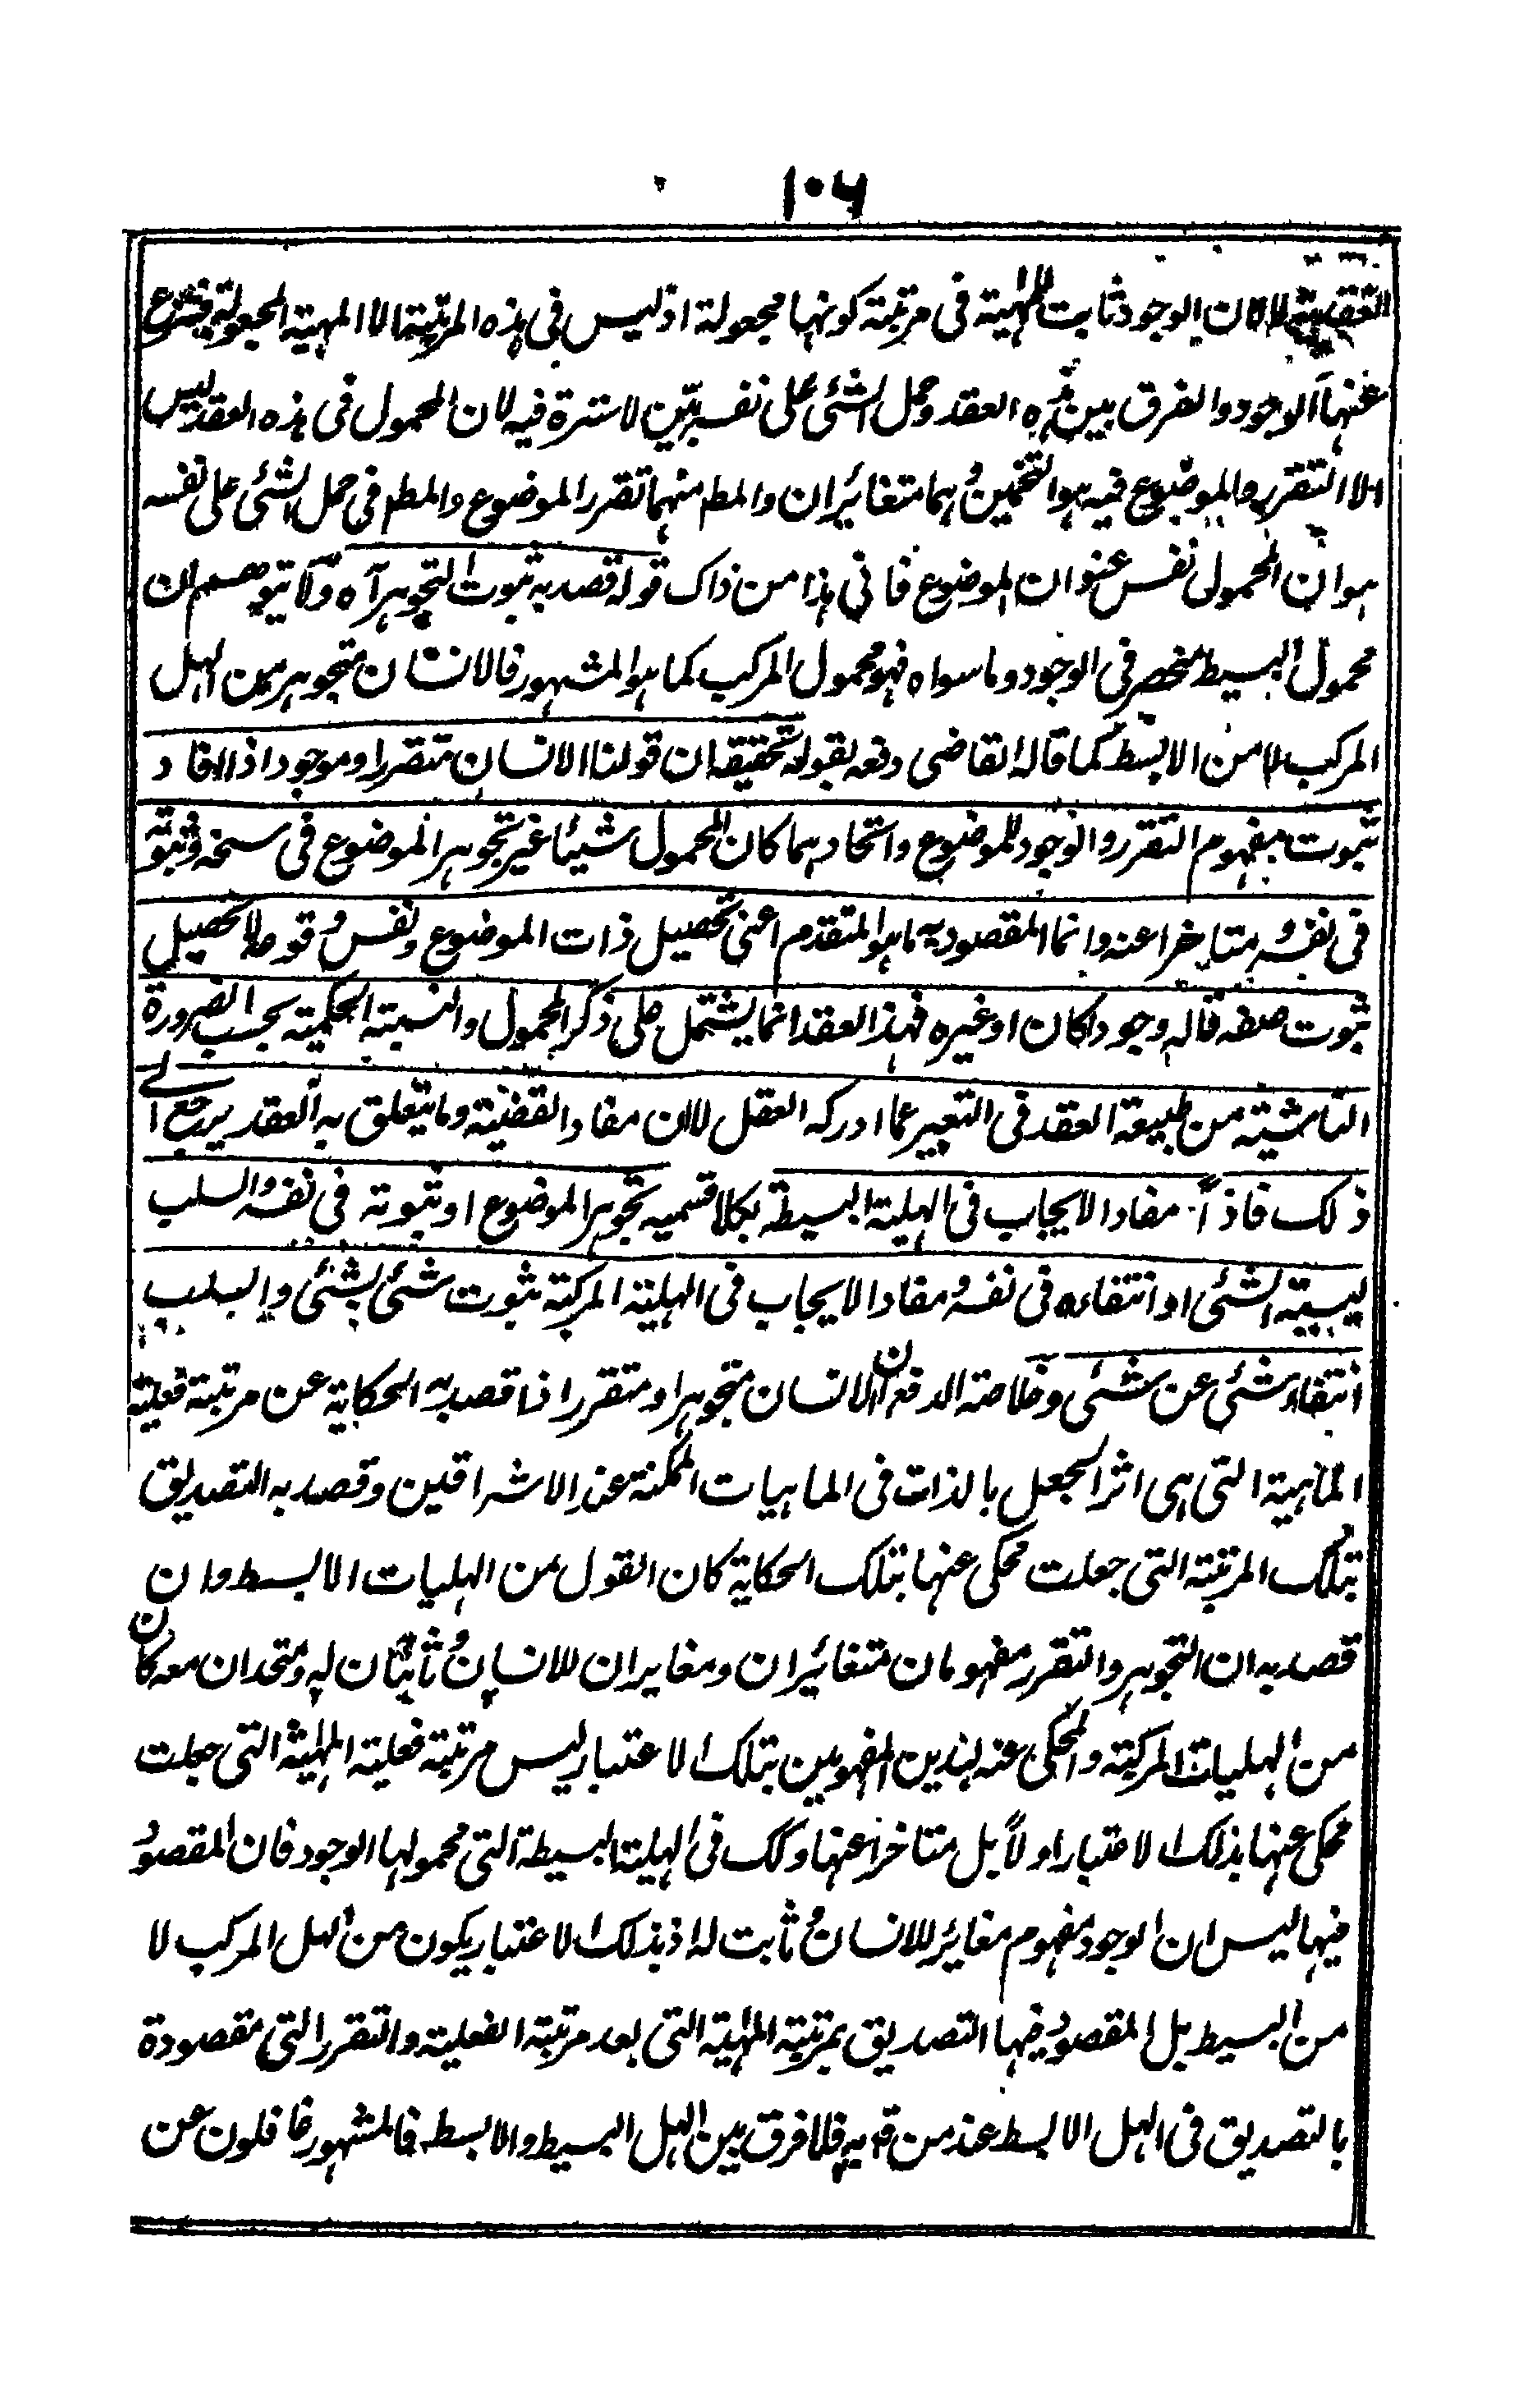 ۱۰۶
القضية لا لان الوجود ثابت للمهية فى مرتبة كونها مجعولة اذ ليس فى هذه المرتبة الا المهية المجعولة ينتزع
عنها الوجود والفرق بين هذه العقد وحمل الشئ على نفسه بيّن لا سترة فيه لان المحمول فى هذه العقد ليس
الا التقرر والموضوع فيه هو التخمين وهما متغائران والمط منهما تقرر الموضوع والمط فى حمل الشئ على نفسه
هو ان المحمول نفس عنوان الموضوع فانى هذا من ذاك قوله قصد به ثبوت التجوهر آه ولا يتوهم ان
محمول البسيط منحصر فى الوجود وما سواه فهو محمول المركب كما هو المشهور فالانسان متجوهر من الهل
المركب لا من الابسط كما قاله القاضى دفعه بقوله تحقيقه ان قولنا الانسان متقرر او موجود اذا افاد
ثبوت مفهوم التقرر والوجود للموضوع واتحادهما كان المحمول شيئا غير تجوهر الموضوع فى سنخه وثبوته
فى نفسه متاخرا عنه وانما المقصود به ما هو المتقدم اعنى تحصيل ذات الموضوع ونفس وقوعه لا تحصيل
ثبوت صفه قاله وجودا كان او غيره فهذا العقد انما يشتمل على ذكر المحمول والنسبته الحكميته بحسب الضرورة
الناشيته من طبيعة العقد فى التعبير عما ادركه العقل لا ان مفاد القضيته وما يتعلق به العقد يرجع الى
ذلك فاذاً مفاد الايجاب فى الهلية البسيطة بكلا قسميه تجوهر الموضوع او ثبوته فى نفسه والسلب
ليسيته الشئ او انتفاءه فى نفسه ومفاد الايجاب فى الهليته المركبة ثبوت شئ لشئ والسلب
انتفاء شئ عن شئ وخلاصة الدفع ان الانسان متجوهر او متقرر اذا قصد به الحكاية عن مرتبة فعلية
الماهية التى هى اثر الجعل بالذات فى الماهيات الممكنة عند الاشراقين وقصد به التصديق
بتلك المرتبة التى جعلت محكى عنها بتلك الحكاية كان القول من الهليات الابسط وان
قصد به ان التجوهر والتقرر مفهومان متغائران ومغايران للانسان وثابتان له ومتحدان معه كان
من الهليات المركبة والمحكى عنه لهذين المفهومين بتلك الاعتبار ليس مرتبة فعلية المهية التى جعلت
محكى عنها بذلك الاعتبار اولاً بل متاخرا عنها وكك فى الهلية البسيطة التى محمولها الوجود فان المقصود
فيها ليس ان الوجود مفهوم مغائر للانسان وثابت له اذ بذلك الاعتبار يكون من الهل المركب لا
من البسيط بل المقصود فيها التصديق بمرتبة المهية التى بعد مرتبة الفعلية والتقرر التى مقصودة
بالتصديق فى الهل الابسط عند من قال به فلا فرق بين الهل البسيط والابسط فالمشهور غافلون عن